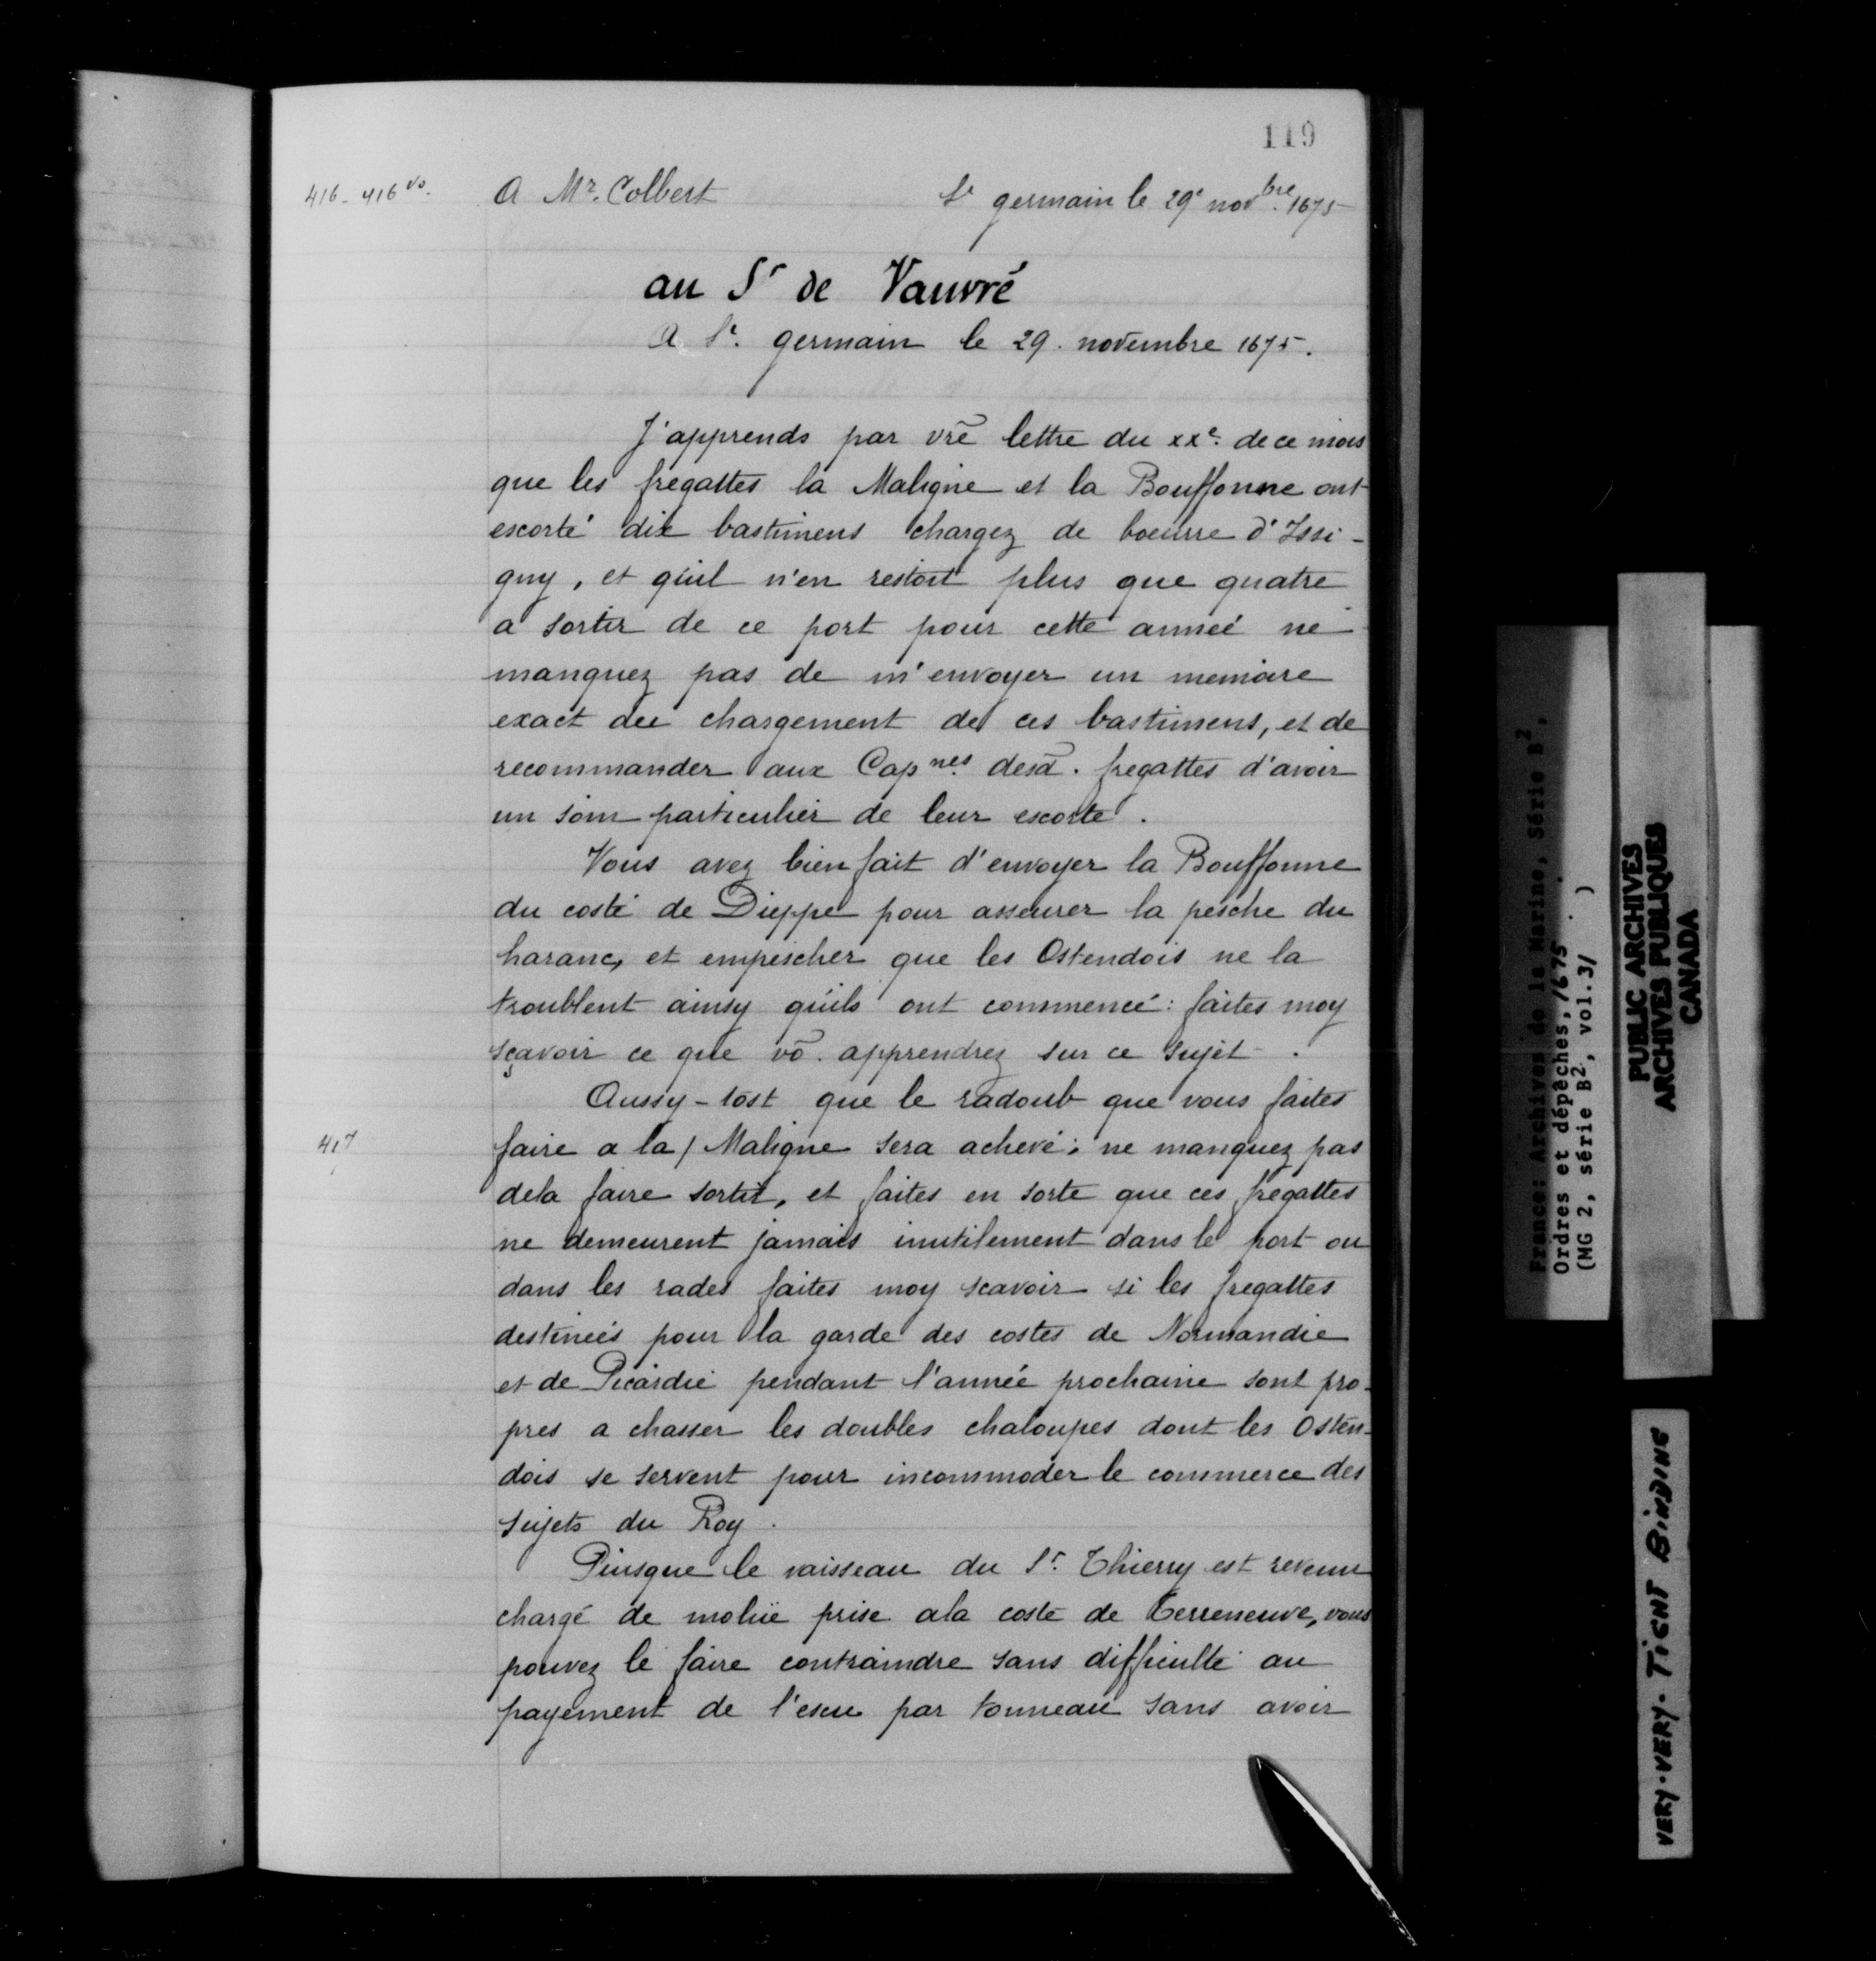 119
416 - 416 vo. A Mr. Colbert St germain le 29e novbre. 1675
au Sr de Vauvré
A St. germain le 29. novembre 1675.
J'apprends par vrē lettre du xxe. de ce mois
que les fregattes la Maligne et la Bouffonne ont
escorté dix bastimens chargez de boeurre d'Issi-
gny, et qu'il n'en restoit plus que quatre
a sortir de ce port pour cette année ne
manquez pas de m'envoyer un memoire
exact du chargement de ces bastimens, et de
recommander aux Capnes. desd. fregattes d'avoir
un soin particulier de leur escorte.
Vous avez bien fait d'envoyer la Bouffonne
du costé de Dieppe pour asseurer la pesche du
haranc, et empescher que les Ostendois ne la
troublent ainsy qu'ils ont commencé: faites moy
sçavoir ce que vō. apprendrez sur ce sujet.
Aussy-tost que le radoub que vous faites
417 faire a la / Maligne sera achevé; ne manquez pas
dela faire sortir, et faites en sorte que ces fregattes
ne demeurent jamais inutilement dans le port ou
dans les rades faites moy scavoir si les fregattes
destinées pour la garde des costes de Normandie
et de Picardie pendant l'année prochaine sont pro-
pres a chasser les doubles chaloupes dont les Osten-
dois se servent pour incommoder le commerce des
sujets du Roy.
Puisque le vaisseau du Sr. Thierry est revenu
chargé de moluë prise ala coste de Terreneuve, vous
pouvez le faire contraindre sans difficulté au
payement de l'escu par tonneau sans avoir
France: Archives de la Marine, Série B2,
Ordres et dépêches, 1675.
(MG 2, série B2, vol.31 )
PUBLIC ARCHIVES
ARCHIVES PUBLIQUES
CANADA
VERY-VERY-TIGHT BINDING